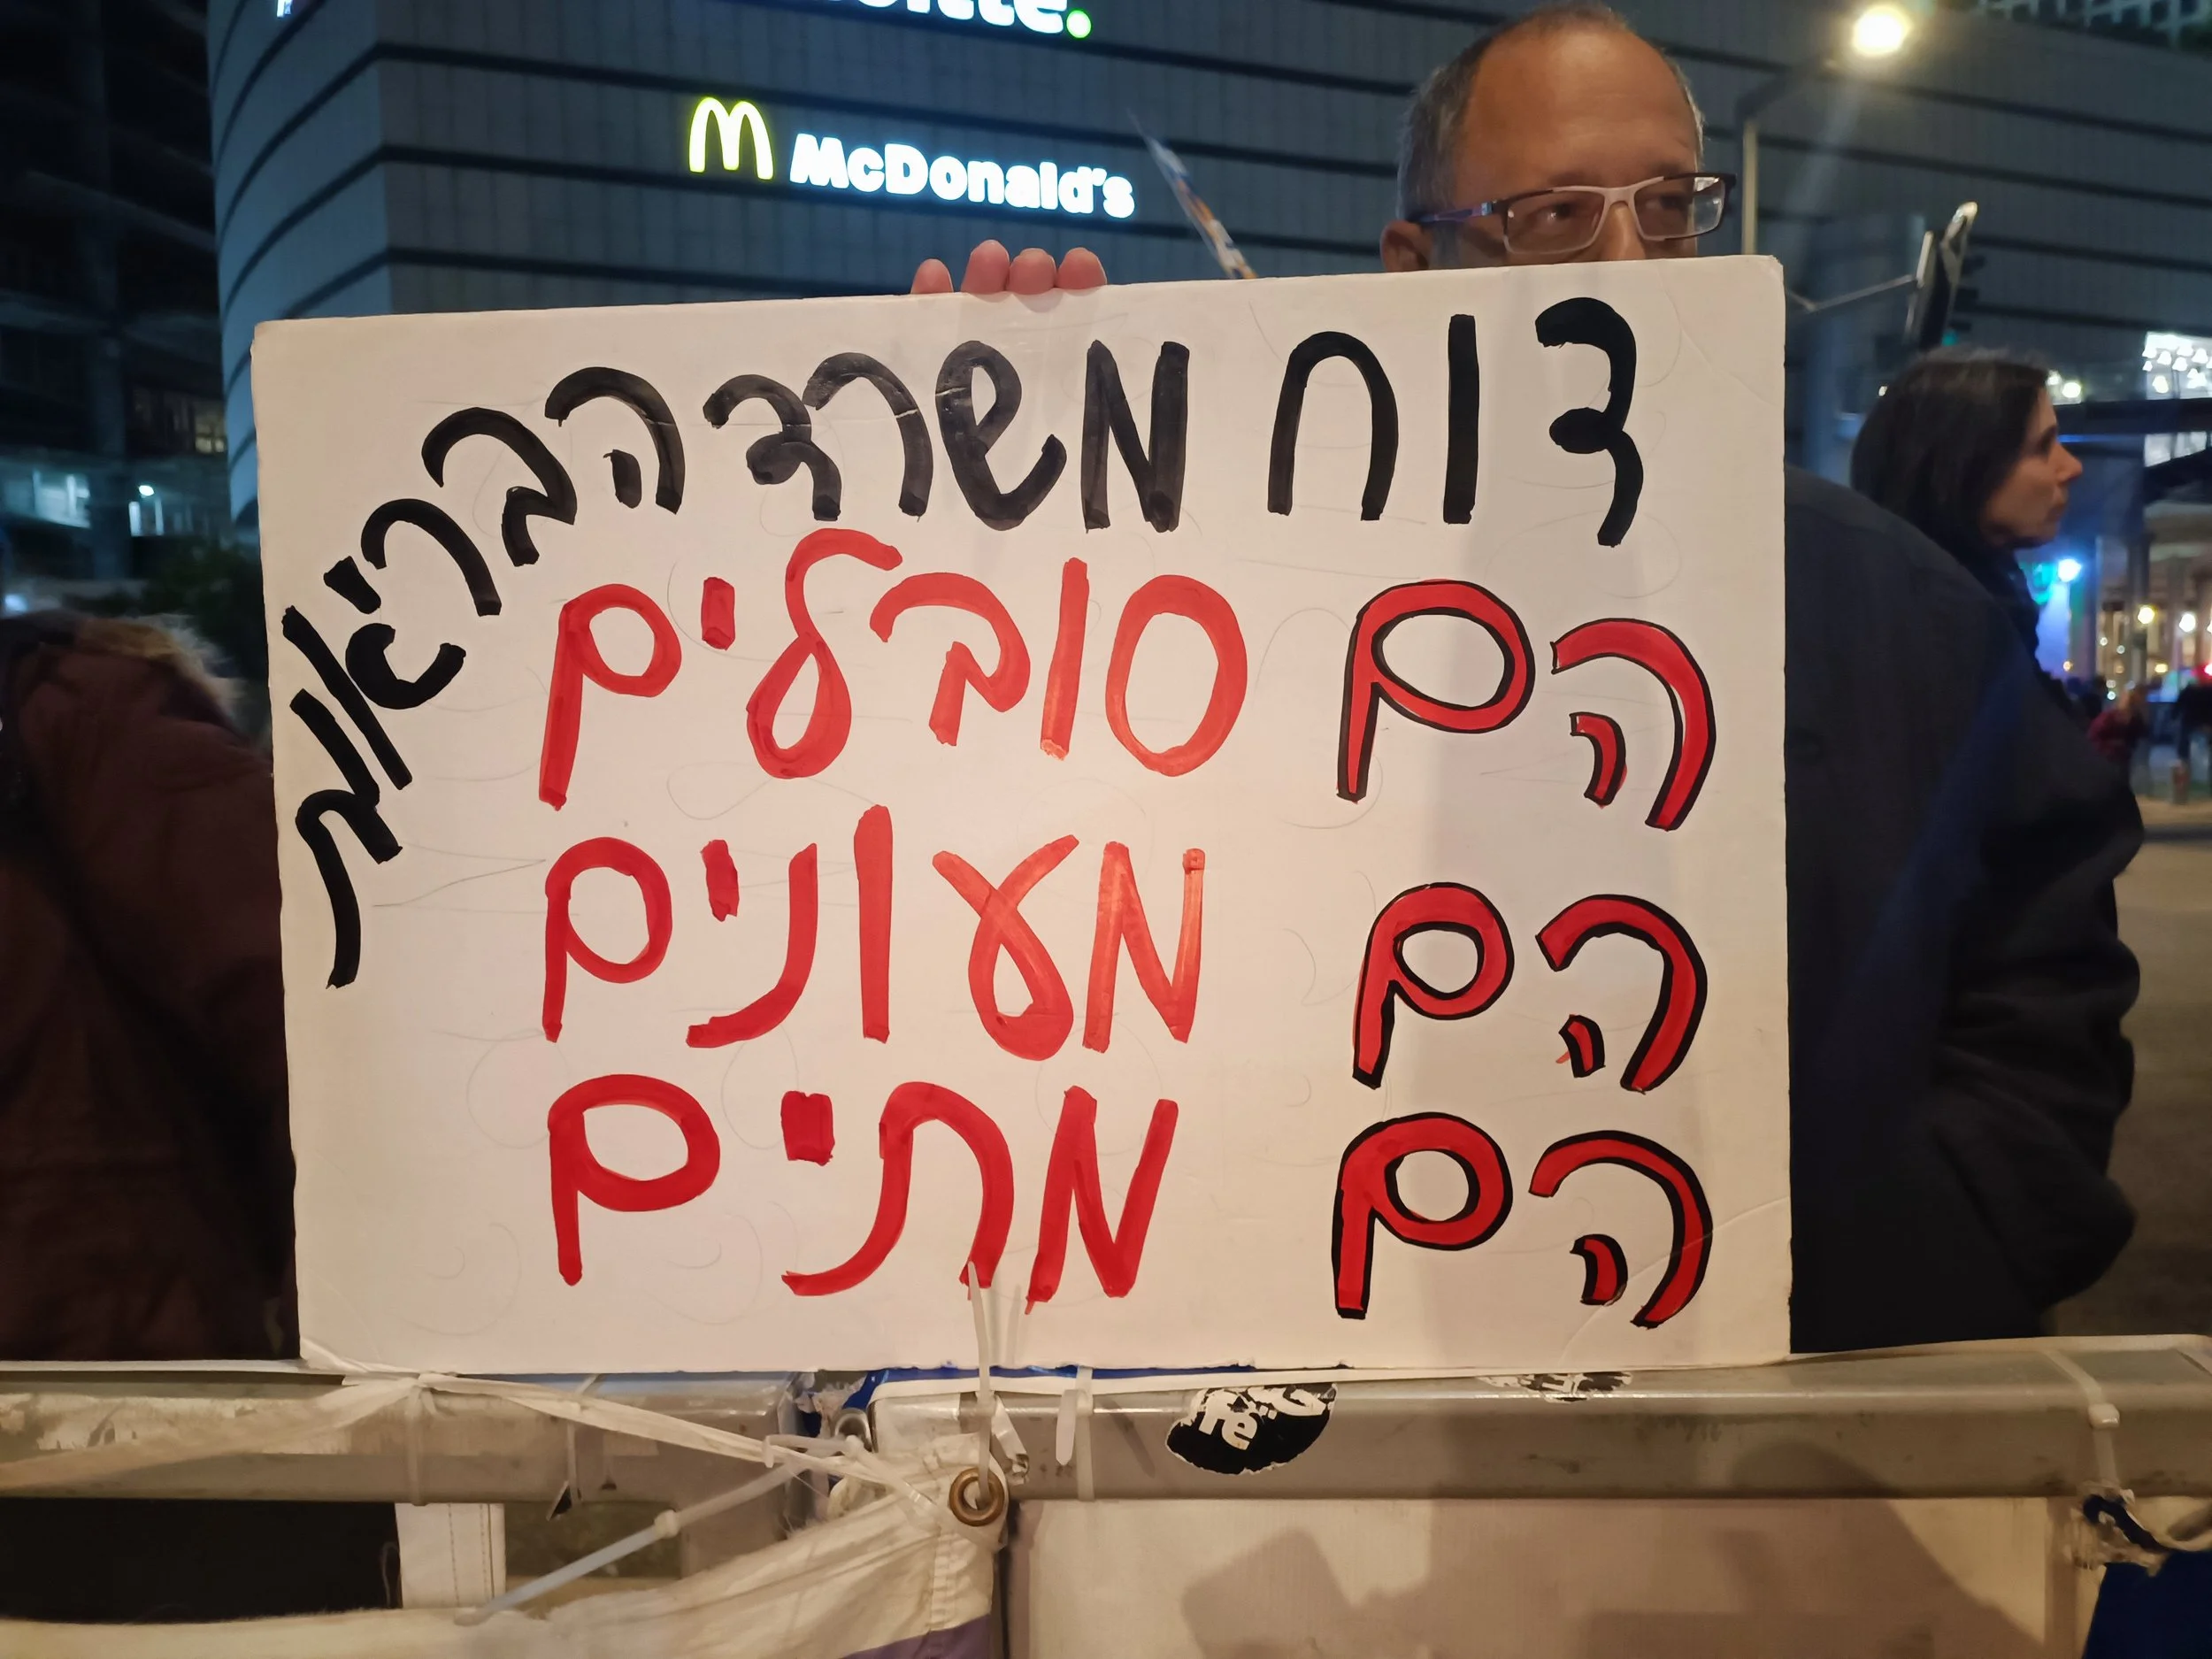 Deloitte.
McDonald's
דוח משרד הבריאות
הם סובלים
הם מעונים
הם מתים